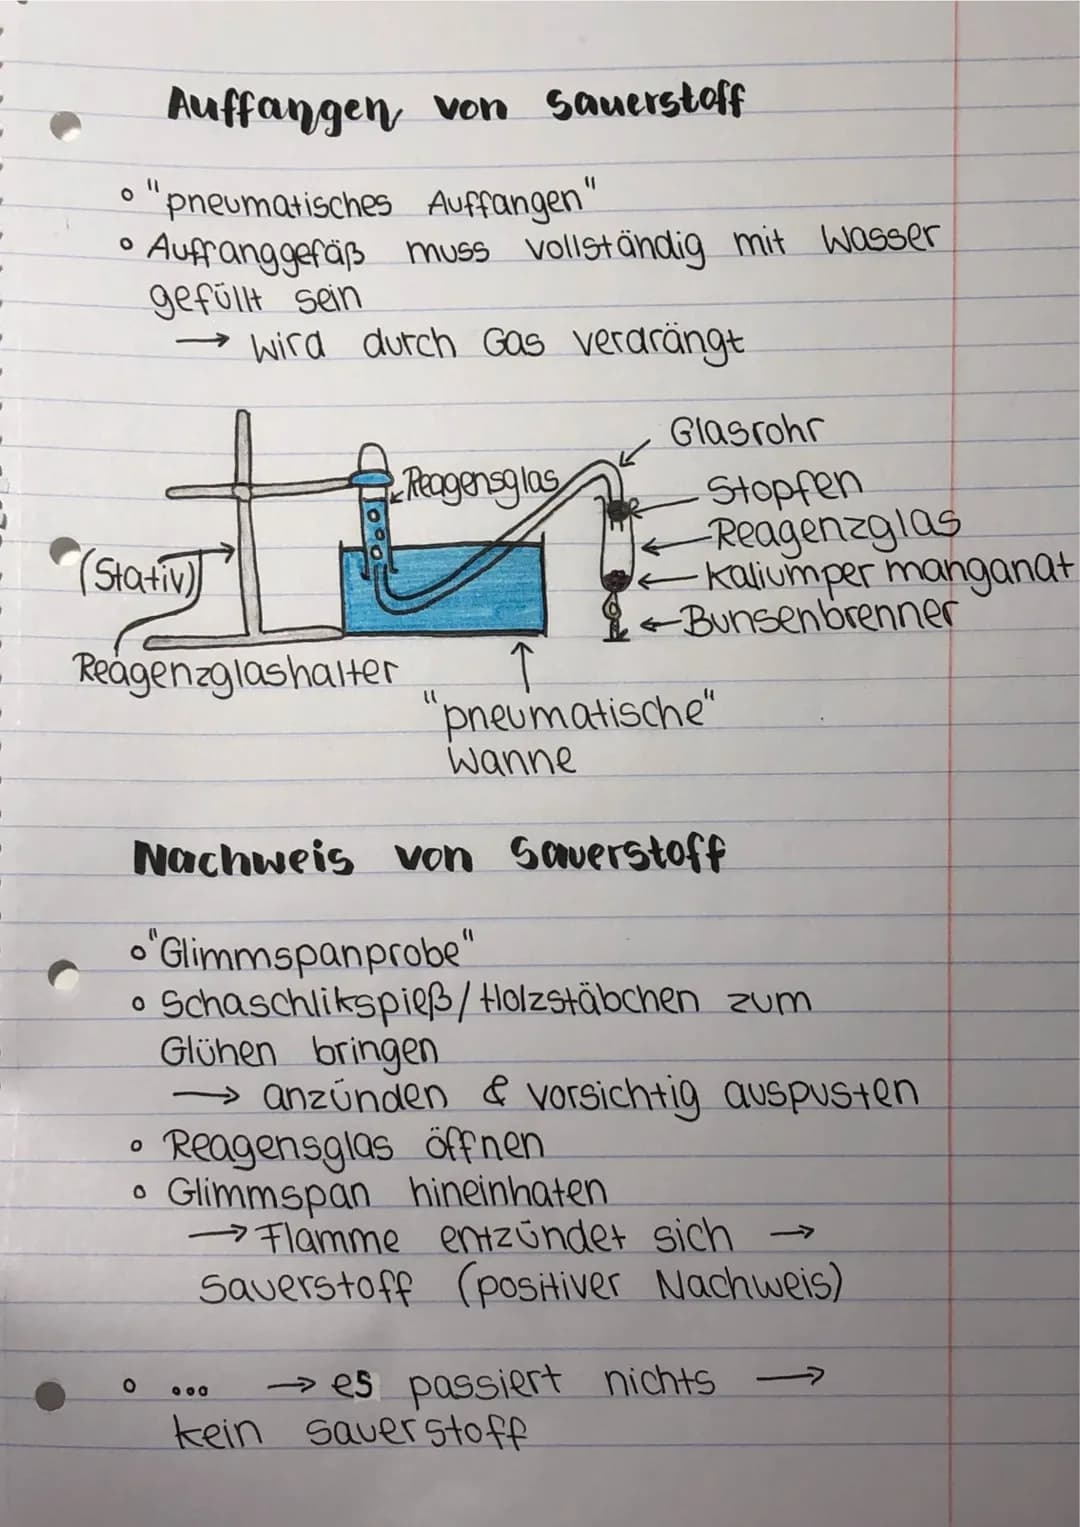 Auffangen von Sauerstoff
"pneumatisches Auffangen"
Auffanggefäß muss vollständig mit Wasser
gefüllt sein
→ wird durch Gas verdrängt
Glasrohr
Reagensglas
Stopfen
Reagenzglas
(Stativ)
Kaliumpermanganat
Bunsenbrenner
Reagenzglashalter
"pneumatische"
Wanne
Nachweis von Sauerstoff
"Glimmspanprobe"
Schaschlikspieß/Holzstäbchen zum
Glühen bringen
→ anzünden & vorsichtig auspusten
Reagensglas öffnen
Glimmspan hineinhaten
→ Flamme entzündet sich →
Sauerstoff (positiver Nachweis)
... → es passiert nichts →
kein Sauerstoff